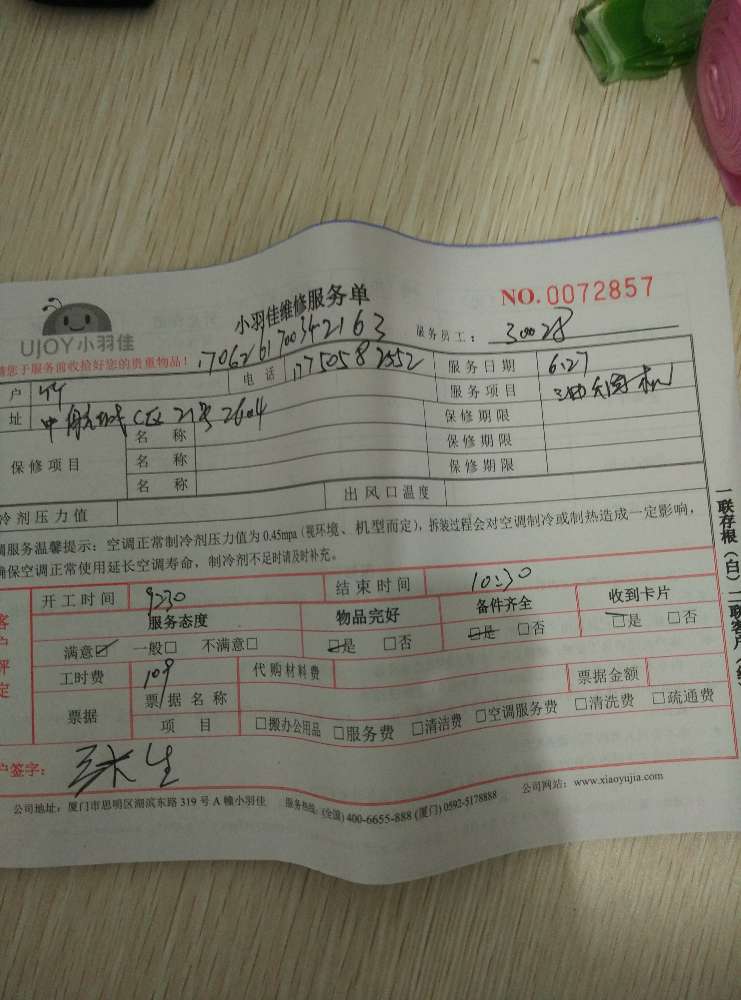 UJOY小羽佳
小羽佳维修服务单
NO.0072857
请您于服务前收拾好您的贵重物品！
1706261700342163
服务员工：30028
户
电话 17750582552
服务日期 6.27
址 中航城C区21号2604
服务项目
保修项目
名称
保修期限
名称
保修期限
名称
保修期限
冷剂压力值
出风口温度
调服务温馨提示：空调正常制冷剂压力值为0.45mpa（视环境、机型而定），拆装过程会对空调制冷或制热造成一定影响，
确保空调正常使用延长空调寿命，制冷剂不足时请及时补充。
开工时间 9:30
结束时间 10:30
客户评定
服务态度
物品完好
备件齐全
收到卡片
满意☑ 一般□ 不满意□
☑是 □否
☑是 □否
☑是 □否
工时费 109
代购材料费
票据金额
票据
票据名称
项目
□搬办公用品 □服务费 □清洁费 □空调服务费 □清洗费 □疏通费
户签字：
公司地址：厦门市思明区湖滨东路319号A幢小羽佳
服务热线：(全国)400-6655-888(厦门)0592-5178888
公司网站：www.xiaoyujia.com
一联存根（白）二联客户